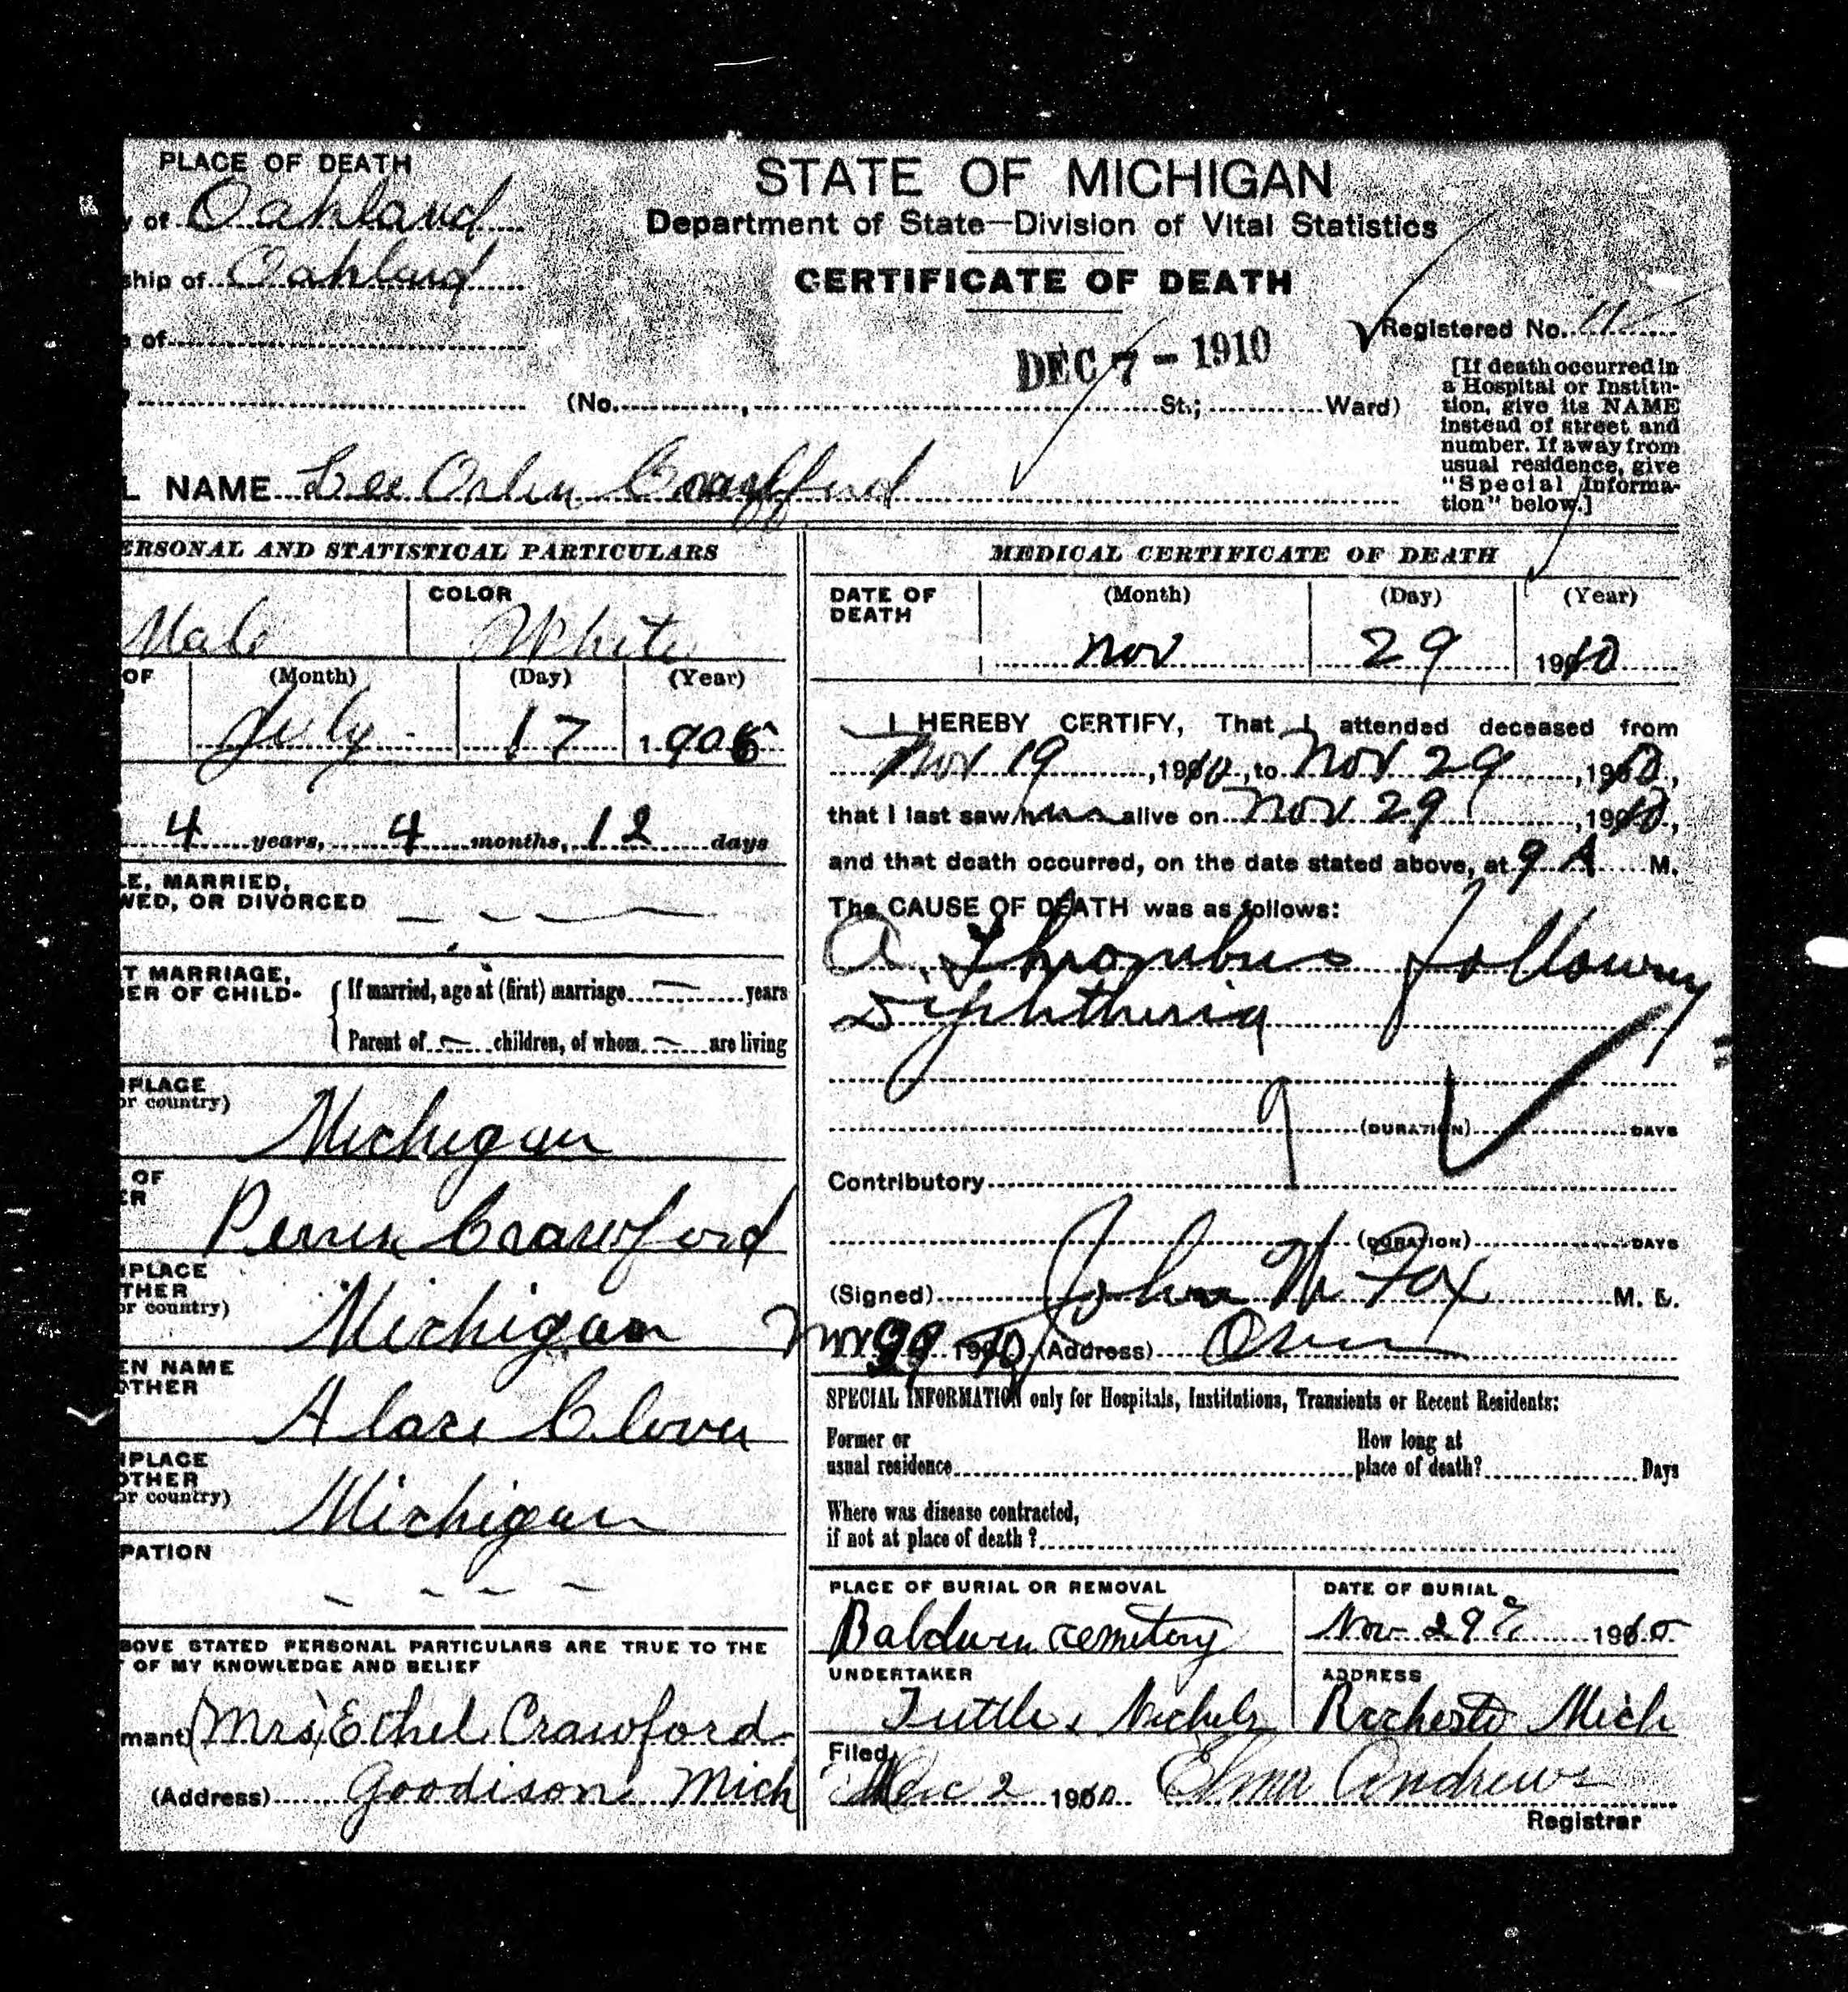 PLACE OF DEATH
y of Oakland
ship of Oakland
of
STATE OF MICHIGAN
Department of State—Division of Vital Statistics
CERTIFICATE OF DEATH
DEC 7 - 1910
Registered No. 11
[If death occurred in
a Hospital or Institu-
tion, give its NAME
instead of street and
number. If away from
usual residence, give
"Special Informa-
tion" below.]
(No. , St.; Ward)
L NAME Lee Crawford
ERSONAL AND STATISTICAL PARTICULARS
Male
COLOR
White
OF
(Month) (Day) (Year)
July 17 1906
4 years, 4 months, 12 days
LE, MARRIED,
WED, OR DIVORCED
T MARRIAGE,
ER OF CHILD-
If married, age at (first) marriage — years
Parent of — children, of whom — are living
PLACE
or country)
Michigan
OF
ER
Perrin Crawford
PLACE
THER
or country)
Michigan
EN NAME
OTHER
PLACE
OTHER
or country)
Michigan
PATION
BOVE STATED PERSONAL PARTICULARS ARE TRUE TO THE
OF MY KNOWLEDGE AND BELIEF
mant) (Mrs) Ethel Crawford
(Address) Goodison Mich
MEDICAL CERTIFICATE OF DEATH
DATE OF
DEATH
(Month) (Day) (Year)
Nov 29 1910
I HEREBY CERTIFY, That I attended deceased from
Nov 19, 1910, to Nov 29, 1910,
that I last saw him alive on Nov 29, 1910,
and that death occurred, on the date stated above, at 9 A M.
The CAUSE OF DEATH was as follows:
A Thrombus following
Diphtheria
9
(DURATION) DAYS
Contributory
(DURATION) DAYS
(Signed) John Fox M. D.
Nov 29 1910 (Address)
SPECIAL INFORMATION only for Hospitals, Institutions, Transients or Recent Residents:
Former or
usual residence
How long at
place of death? Days
Where was disease contracted,
if not at place of death?
PLACE OF BURIAL OR REMOVAL
Baldwin cemetery
DATE OF BURIAL
Nov 29 1910
UNDERTAKER
Tuttle & Nichols
ADDRESS
Rochester Mich
Filed
Dec 2 1910 Andrews
Registrar